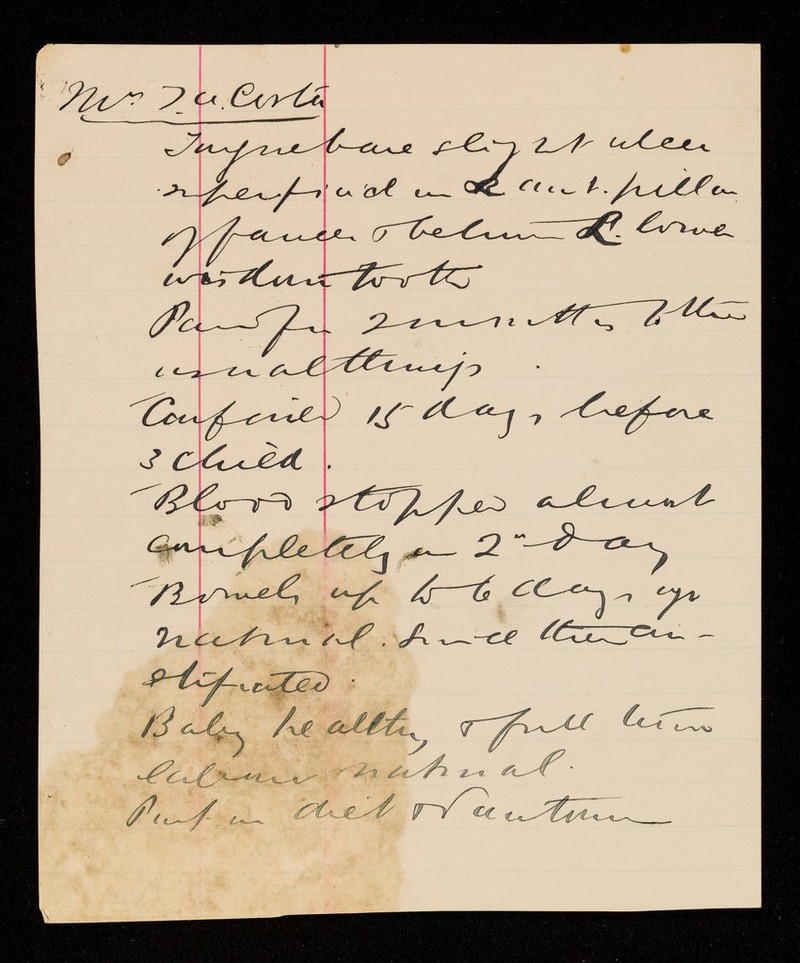 Mrs Costa
Tongue bare slight ulcer
superficial on R ant. pillar
of fauces & behind R. lower
wisdom tooth
Pain for 2 months
usual things.
Confined 15 days before
3 child.
Blood stopped almost
completely on 2nd day
Bowels up to 6 days ago
natural. Since then con-
stipated.
Baby healthy & full time
labour natural.
Put on diet & Santonin